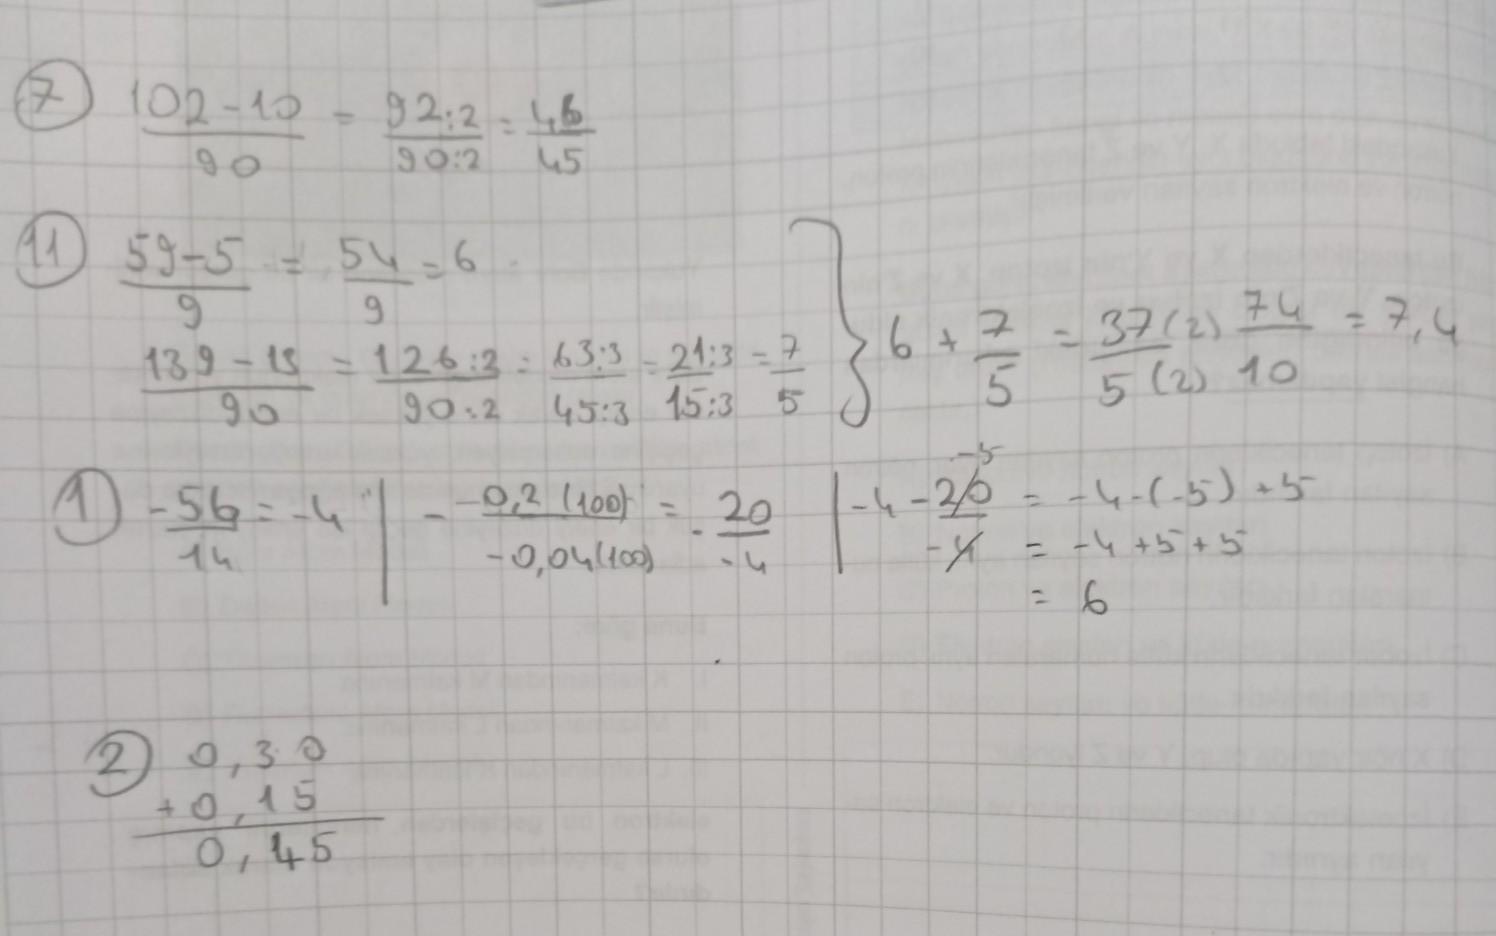 7 102-10/90 = 92:2/90:2 = 46/45
11 59-5/9 = 54/9 = 6
139-13/90 = 126:2/90:2 = 63:3/45:3 = 21:3/15:3 = 7/5 } 6 + 7/5 = 37(2)/5(2) 74/10 = 7,4
1 -56/14 = -4 | - -0,2(100)/-0,04(100) = - 20/-4 | -4 - 20/-4 -5 = -4-(-5)+5
= -4+5+5
= 6
2 0,30
+0,15
0,45